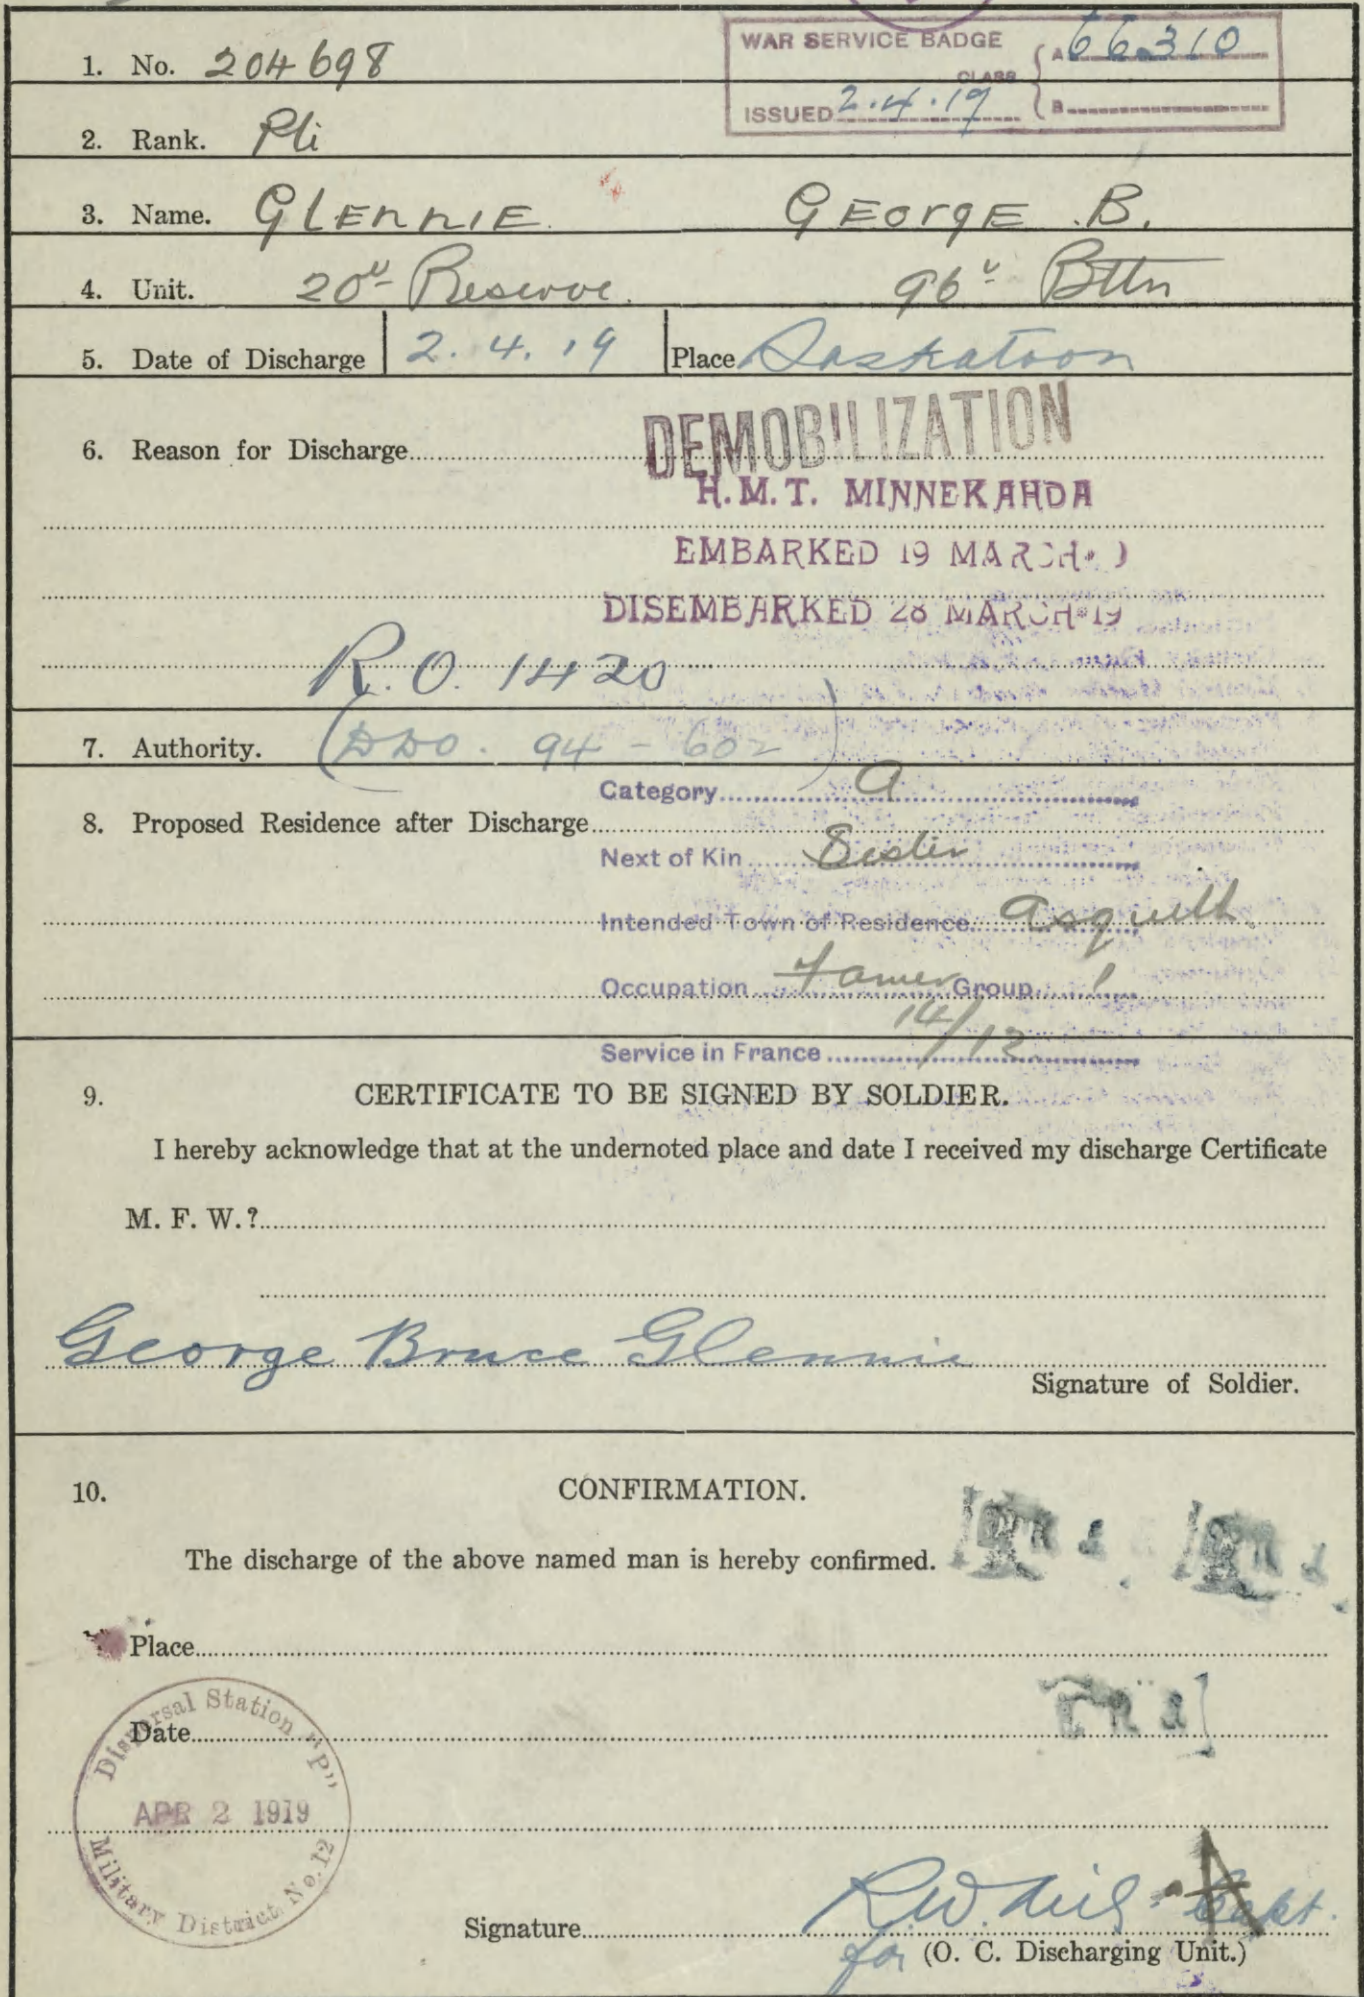 WAR SERVICE BADGE
CLASS
A 66310
B
ISSUED 2.4.19
1. No. 204698
2. Rank. Pte
3. Name. GLENNIE GEORGE B.
4. Unit. 20th Reserve. 96th Bttn
5. Date of Discharge 2.4.19 Place Saskatoon
6. Reason for Discharge DEMOBILIZATION
H.M.T. MINNEKAHDA
EMBARKED 19 MARCH
DISEMBARKED 28 MARCH 19
R.O. 1420
7. Authority. (DDO. 94 - 602)
Category A
8. Proposed Residence after Discharge
Next of Kin Sister
Intended Town of Residence Asquith
Occupation Farmer Group 1
Service in France 14/12
9. CERTIFICATE TO BE SIGNED BY SOLDIER.
I hereby acknowledge that at the undernoted place and date I received my discharge Certificate
M. F. W.?
George Bruce Glennie
Signature of Soldier.
10. CONFIRMATION.
The discharge of the above named man is hereby confirmed.
Place
Date
Dispersal Station "P"
APR 2 1919
Military District No. 12
Signature R.W. Capt.
for (O. C. Discharging Unit.)